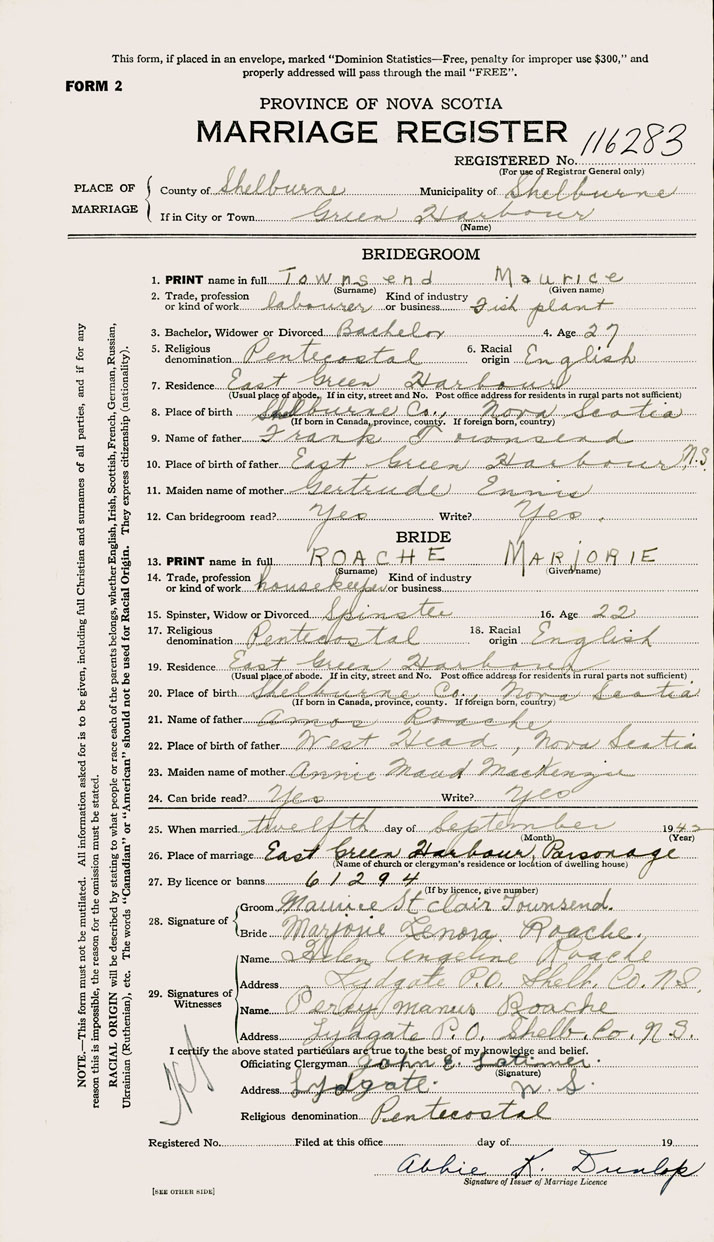 This form, if placed in an envelope, marked "Dominion Statistics—Free, penalty for improper use $300," and
properly addressed will pass through the mail "FREE".
FORM 2
PROVINCE OF NOVA SCOTIA
MARRIAGE REGISTER
REGISTERED No. 116283
(For use of Registrar General only)
PLACE OF MARRIAGE
County of Shelburne Municipality of Shelburne
If in City or Town Green Harbour
(Name)
BRIDEGROOM
1. PRINT name in full Townsend Maurice
(Surname) (Given name)
2. Trade, profession or kind of work labourer Kind of industry or business Fish plant
3. Bachelor, Widower or Divorced Bachelor 4. Age 27
5. Religious denomination Pentecostal 6. Racial origin English
7. Residence East Green Harbour
(Usual place of abode. If in city, street and No. Post office address for residents in rural parts not sufficient)
8. Place of birth Shelburne Co., Nova Scotia
(If born in Canada, province, county. If foreign born, country)
9. Name of father Frank Townsend
10. Place of birth of father East Green Harbour N.S.
11. Maiden name of mother Gertrude Ennis
12. Can bridegroom read? Yes Write? Yes.
BRIDE
13. PRINT name in full ROACHE MARJORIE
(Surname) (Given name)
14. Trade, profession or kind of work housekeeper Kind of industry or business
15. Spinster, Widow or Divorced Spinster 16. Age 22
17. Religious denomination Pentecostal 18. Racial origin English
19. Residence East Green Harbour
(Usual place of abode. If in city, street and No. Post office address for residents in rural parts not sufficient)
20. Place of birth Shelburne Co., Nova Scotia
(If born in Canada, province, county. If foreign born, country)
21. Name of father Amos Roache
22. Place of birth of father West Head, Nova Scotia
23. Maiden name of mother Annie Maud MacKenzie
24. Can bride read? Yes Write? Yes
25. When married twelfth day of September 1942
(Month) (Year)
26. Place of marriage East Green Harbour, Parsonage
(Name of church or clergyman's residence or location of dwelling house)
27. By licence or banns 61294
(If by licence, give number)
28. Signature of
Groom Maurice St clair Townsend.
Bride Marjorie Lenora Roache.
29. Signatures of Witnesses
Name Helen Angeline Roache
Address Lydgate P.O. Shelb. Co. N.S.
Name Percy manus Roache
Address Lydgate P.O. Shelb. Co. N.S.
I certify the above stated particulars are true to the best of my knowledge and belief.
Officiating Clergyman John E. Latimer.
(Signature)
Address Lydgate. N.S.
Religious denomination Pentecostal
Registered No. Filed at this office day of 19
Abbie K. Dunlop
Signature of Issuer of Marriage Licence
[SEE OTHER SIDE]
NOTE.—This form must not be mutilated. All information asked for is to be given, including full Christian and surnames of all parties, and if for any
reason this is impossible, the reason for the omission must be stated.
RACIAL ORIGIN will be described by stating to what people or race each of the parents belongs, whether English, Irish, Scottish, French, German, Russian,
Ukrainian (Ruthenian), etc. The words "Canadian" or "American" should not be used for Racial Origin. They express citizenship (nationality).